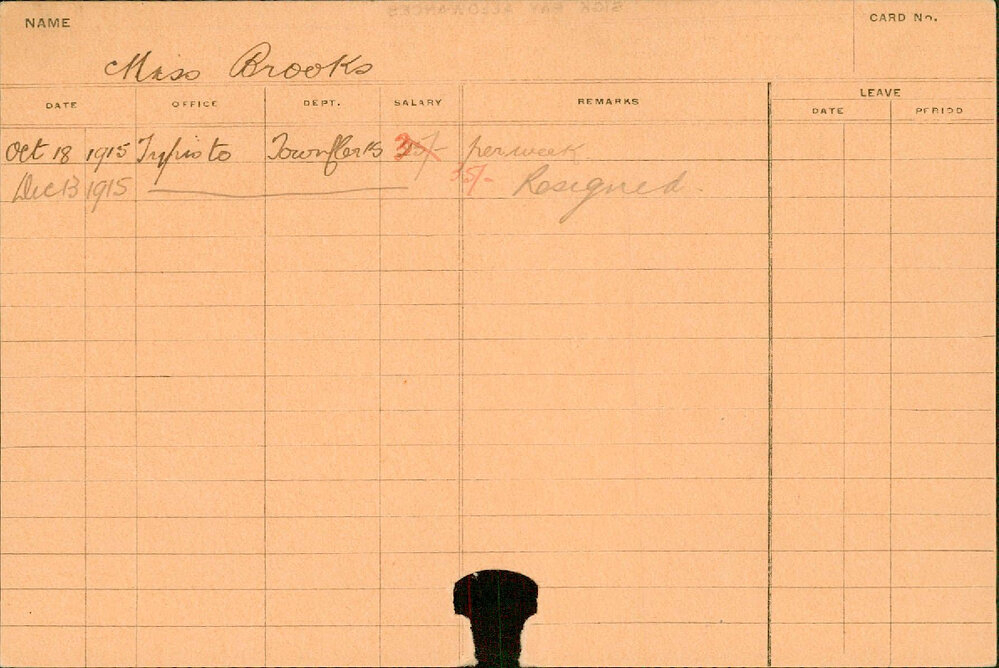 NAME
CARD No.
Miss Brooks
DATE OFFICE DEPT. SALARY REMARKS LEAVE
DATE PERIOD
Oct 18 1915 Typiste Townflerks per week
Dec 13 1915 35/- Resigned.